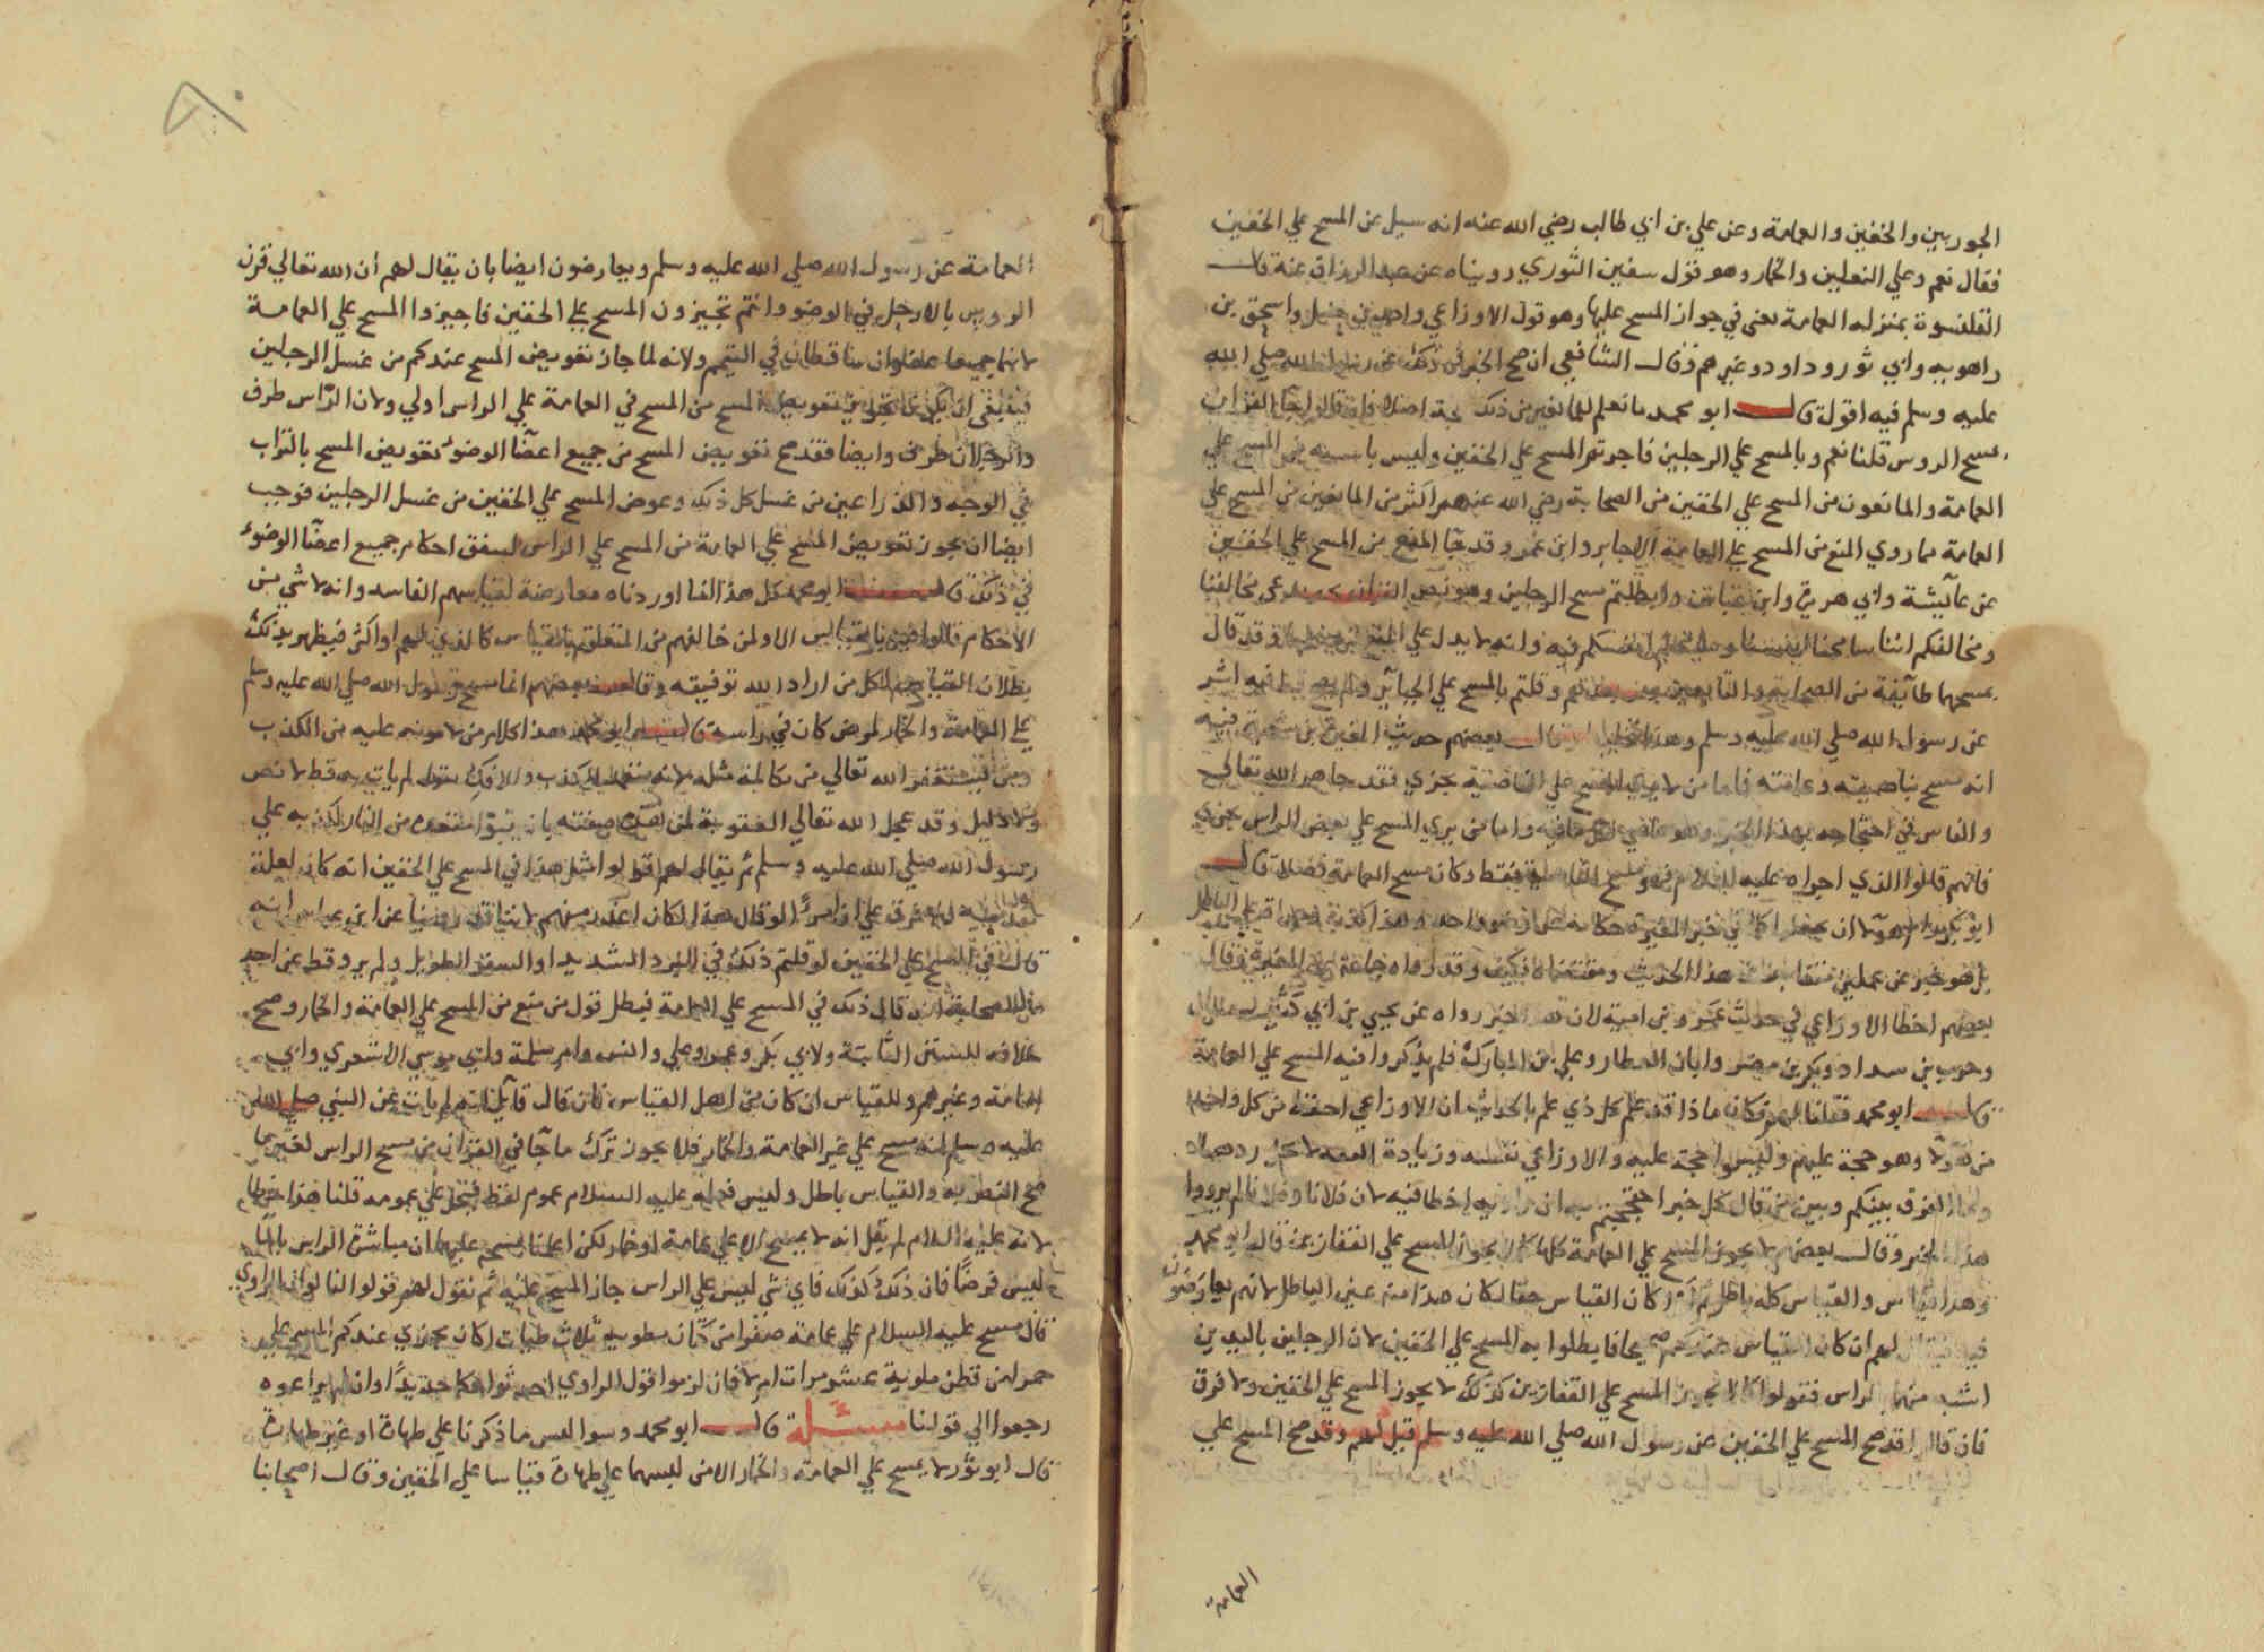 الجوربين والخفين والعمامة وعن علي بن ابي طالب رضي الله عنه انه سيل عن المسح علي الخفين
فقال نعم وعلي النعلين والخمار وهو قول سفين الثوري رويناه عن عبد الرزاق عنه قال
القلنسوة بمنزله العمامة يعني في جواز المسح عليها وهو قول الاوزاعي واحمد بن حنبل واسحق بن
راهويه وابي ثور وداود وغيرهم وقال الشافعي ان صح الخبر في ذلك عن رسول الله صلي الله
عليه وسلم فيه اقول قال ابو محمد ما نعلم للمانعين من ذلك حجة اصلا فان قالوا جا القران
بمسح الروس قلنا نعم وبالمسح علي الرجلين فاجزتم المسح علي الخفين وليس باثبت من المسح علي
العمامة والمانعون من المسح علي الخفين من الصحابة رضي الله عنهم اكثر من المانعين من المسح علي
العمامة فما روي المنع من المسح علي العمامة الا عن جابر وابن عمر وقد جا المنع من المسح علي الخفين
عن عآيشة وابي هريرة وابن عباس وابطلتم مسح الرجلين وهو نص القران بخبر يدعي مخالفنا
ومخالفكم اننا سامحنا انفسنا وسامحتم انفسكم فيه وانه لا يدل علي المنع من مسحهما وقد قال
بمسحهما طآيفة من الصحابة والتابعين ومن بعدهم وقلتم بالمسح علي الجبآير ولم يصح فيه اثر
عن رسول الله صلي الله عليه وسلم وهذا تخليط وقال بعضهم حديث المغيرة بن شعبة فيه
انه مسح بناصيته وعمامته فاما من لا يري المسح علي الناصية يجزي فقد جاهر الله تعالي
والناس في احتجاجه بهذا الخبر وهو عاصي لكل ما فيه واما من يري المسح علي بعض الراس يجزي
فانهم قالوا الذي اجزاه عليه السلام فهو مسح الناصية فقط وكان مسح العمامة فضلا قال
ابو محمد
بل هو خبر عن عملين متغايرين هذا الحديث ومقتضاه فكيف وقد رواه جماعة عن المغيرة وقال
بعضهم اخطا الاوزاعي في حديث عمرو بن امية لان هذا الخبر رواه عن يحيي بن ابي كثير
وحرب بن شداد وبكر بن مضر وابان العطار وعلي بن المبارك فلم يذكروا فيه المسح علي العمامة
قال ابو محمد فقلنا لهم فكان ماذا قد علم كل ذي علم بالحديث ان الاوزاعي احفظ من كل واحد
من هولا وهو حجة عليهم وليسوا حجة عليه والاوزاعي ثقة وزيادة الثقة لا يحل ردها
وما الفرق بينكم وبين من قال كل خبر احتججتم به ان راويه اخطا فيه لان فلانا وفلانا لم يرووا
هذا الخبر وقال بعضهم لا يجوز المسح علي العمامة كما لا يجوز المسح علي القفازين قال ابو محمد
وهذا قياس والقياس كله باطل ثم لو كان القياس حقا لكان هذا منه عين الباطل لانهم يعارضون
فيه فيقال لهم ان كان القياس عندكم صحيحا فابطلوا به المسح علي الخفين لان الرجلين باليدين
اشبه منهما بالراس فقولوا كما لا يجوز المسح علي القفازين كذلك لا يجوز المسح علي الخفين ولا فرق
فان قالوا قد صح المسح علي الخفين عن رسول الله صلي الله عليه وسلم قيل لهم وقد صح المسح علي
العمامة
العمامة عن رسول الله صلي الله عليه وسلم ويعارضون ايضا بان يقال لهم ان الله تعالي قرن
الروس بالارجل في الوضو وانتم تجيزون المسح علي الخفين فاجيزوا المسح علي العمامة
لانهما جميعا عضوان ساقطان في التيمم ولانه لما جاز تعويض المسح عندكم من غسل الرجلين
فينبغي ان يكون يجوز تعويض المسح من المسح في العمامة علي الراس اولي ولان الراس طرف
والرجلان طرف وايضا فقد صح تعويض المسح من جميع اعضآ الوضوء تعويض المسح بالتراب
في الوجه والذراعين من غسل كل ذلك وعوض المسح علي الخفين من غسل الرجلين فوجب
ايضا ان يجوز تعويض المسح علي العمامة من المسح علي الراس ليتفق احكام جميع اعضآ الوضوء
في ذلك قال ابو محمد كل هذا انما اوردناه معارضة لقياسهم الفاسد وانه لا شي من
الاحكام قالوا فيه بالقياس الا ولمن خالفهم من التعلق بالقياس كالذي لهم او اكثر فيظهر بذلك
بطلان القياس لكل من اراد الله توفيقه وقال بعضهم انما مسح رسول الله صلي الله عليه وسلم
علي العمامة والخمار لمرض كان في راسه قال ابو محمد هذا كلام من لا مونه عليه من الكذب
ومن يستغفر الله تعالي من مكالمة مثله لانه متعمد للكذب والافك بقول لم يات به قط لا نص
ولا دليل وقد عجل الله تعالي العقوبة لمن هذه صفته بان يتبوا مقعده من النار لكذبه علي
رسول الله صلي الله عليه وسلم ثم يقال لهم قولوا مثل هذا في المسح علي الخفين انه كان لعلة
قال في المسح علي الخفين لو قلتم ذلك في البرد الشديد او السفر الطويل ولم يرو قط عن احد
من الصحابة انه قال ذلك في المسح علي العمامة فبطل قول من منع من المسح علي العمامة والخمار وصح
خلافه للسنن الثابتة ولابي بكر وعمر وعلي وانس وام سلمة وابي موسي الاشعري وابي
امامة وغيرهم وللقياس ان كان من اهل القياس فان قال قآيل انه لم يات عن النبي صلي الله
عليه وسلم انه مسح علي غير العمامة والخمار فلا يجوز ترك ما جآ في القران من مسح الراس لغير ما
صح النص به والقياس باطل وليس فعله عليه السلام عموم لفظ فيحمل علي عمومه قلنا هذا خطا
لانه عليه السلام لم يقل انه لا يمسح الا علي عمامة او خمار لكن اعلمنا بمسحه عليهما ان مباشرة الراس بالمآ
ليس فرضا فان ذلك كذلك فاي شي لبس علي الراس جاز المسح عليه ثم نقول لهم قولوا لنا لو ان الراوي
قال مسح عليه السلام علي عمامة صفرا من كتان مطوية ثلاث طيات اكان يجزي عندكم المسح علي
حمرا من قطن ملوية عشر مرات ام لا فان لزموا قول الراوي احدثوا حكما جديدا وان لم يراعوه
رجعوا الي قولنا مسئلة قال ابو محمد وسوا لبس ما ذكرنا علي طهارة او غير طهارة
قال ابو ثور لا يمسح علي العمامة والخمار الا من لبسهما علي طهارة قياسا علي الخفين وقال اصحابنا